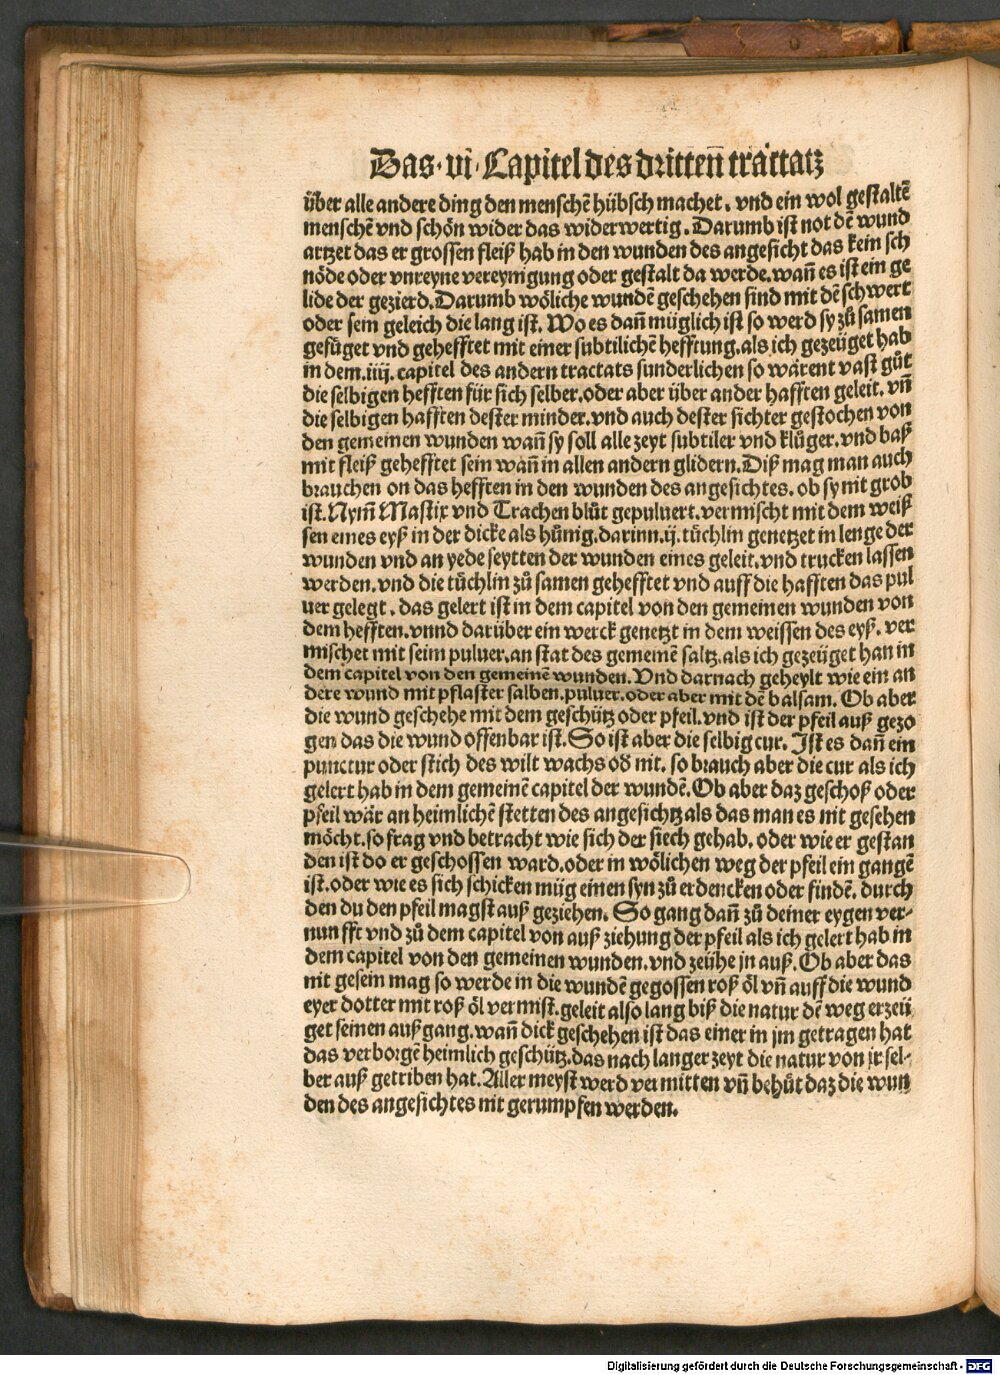 Das·vi·Capitel des dritteñ tractatz
über alle andere ding den menschē hübsch machet. vnd ein wol gestaltē
menschē vnd schön wider das widerwertig. Darumb ist not dē wund
artzet das er grossen fleiß hab in den wunden des angesicht das kein sch
nöde oder vnreyne vereynigung oder gestalt da werde. wañ es ist ein ge
lide der gezierd. Darumb wöliche wundē geschehen sind mit dē schwert
oder sein geleich die lang ist. Wo es dañ müglich ist so werd sy zů samen
gefüget vnd gehefftet mit einer subtilichē hefftung. als ich gezeüget hab
in dem. iiij. capitel des andern tractats sunderlichen so wärent vast gůt
die selbigen hefften für sich selber. oder aber über ander hafften geleit. vñ
die selbigen hafften dester minder. vnd auch dester sichter gestochen von
den gemeinen wunden wañ sy soll alle zeyt subtiler vnd klůger. vnd baß
mit fleiß gehefftet sein wañ in allen andern glidern. Diß mag man auch
brauchen on das hefften in den wunden des angesichtes. ob sy nit grob
ist. Nym̄ Mastix vnd Trachen blůt gepuluert. vermischt mit dem weiß
sen eines eyß in der dicke als hünig. darinn. ij. tüchlin genetzet in lenge der
wunden vnd an yede seytten der wunden eines geleit. vnd trucken lassen
werden. vnd die tüchlin zů samen gehefftet vnd auff die hafften das pul
uer gelegt. das gelert ist in dem capitel von den gemeinen wunden von
dem hefften. vnnd darüber ein werck genetzt in dem weissen des eyß. ver
mischet mit seim puluer. an stat des gemeinē saltz. als ich gezeüget han in
dem capitel von den gemeinē wunden. Vnd darnach geheylt wie ein an
dere wund mit pflaster salben. puluer. oder aber mit dē balsam. Ob aber
die wund geschehe mit dem geschütz oder pfeil. vnd ist der pfeil auß gezo
gen das die wund offenbar ist. So ist aber die selbig cur. Ist es dañ ein
punctur oder stich des wilt wachs od̄ nit. so brauch aber die cur als ich
gelert hab in dem gemeinē capitel der wundē. Ob aber daz geschoß oder
pfeil wär an heimlichē stetten des angesichtz als das man es nit gesehen
möcht. so frag vnd betracht wie sich der siech gehab. oder wie er gestan
den ist do er geschossen ward. oder in wölichen weg der pfeil ein gangē
ist. oder wie es sich schicken müg einen syn zů erdencken oder findē. durch
den du den pfeil magst auß geziehen. So gang dañ zů deiner eygen ver-
nunfft vnd zů dem capitel von auß ziehung der pfeil als ich gelert hab in
dem capitel von den gemeinen wunden. vnd zeühe jn auß. Ob aber das
nit gesein mag so werde in die wundē gegossen roß öl vñ auff die wund
eyer dotter mit roß öl vermist. geleit also lang biß die natur dē weg erzeü
get seinen außgang. wañ dick geschehen ist das einer in jm getragen hat
das verborgē heimlich geschütz. das nach langer zeyt die natur von jr sel-
ber auß getriben hat. Aller meyst werd vermitten vñ behüt daz die wun
den des angesichtes nit gerumpfen werden.
Digitalisierung gefördert durch die Deutsche Forschungsgemeinschaft - DFG